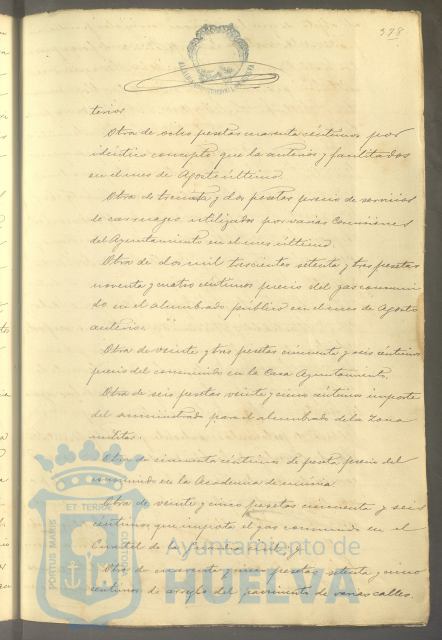 378
terior
Otra de ocho pesetas cuarenta céntimos por
idéntico concepto que la anterior y facilitados
en el mes de Agosto último.
Otra de treinta y dos pesetas precio de servicios
de carruages utilizados por varias Comisiones
del Ayuntamiento en el mes último.
Otra de dos mil trescientas setenta y tres pesetas
noventa y cuatro céntimos precio del gas consumi-
do en el alumbrado público en el mes de Agosto
anterior.
Otra de veinte y tres pesetas cincuenta y seis céntimos
precio del consumido en la Casa Ayuntamiento.
Otra de seis pesetas veinte y cinco céntimos importe
del suministrado para el alumbrado de la Zona
militar.
Otra de cincuenta céntimos de peseta precio del
consumido en la Academia de música
Otra de veinte y cinco pesetas cincuenta y seis
céntimos que importa el gas consumido en el
Cuartel de la Guardia Civil y
Otra de cuarenta y pesetas setenta y cinco
céntimos de arreglo del pavimento de varias calles.
ET TERRAE
PORTUS MARIS
Ayuntamiento de
HUELVA